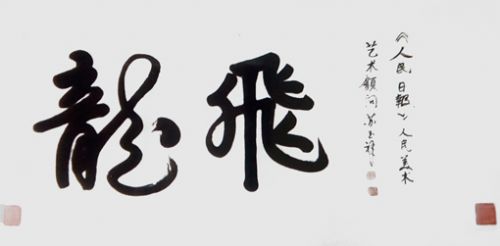 《人民日報》人民美术
艺术顧问
飛龍